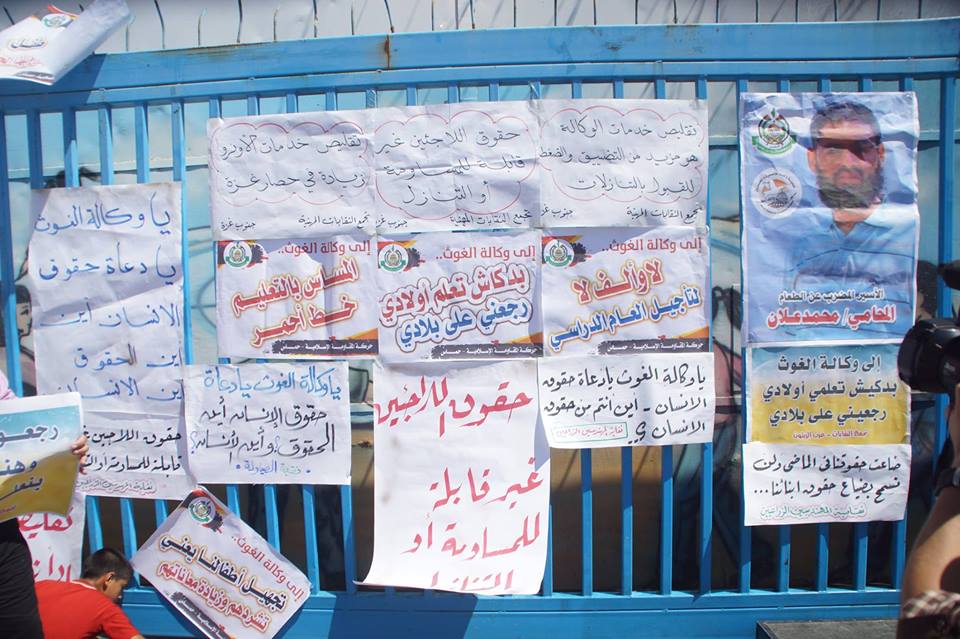 تقليص خدمات الأونروا
زيادة في حصار غزة
تجمع النقابات المهنية
جنوب غزة
حقوق اللاجئين غير
قابلة للمساومة
أو التنازل
تجمع النقابات المهنية
جنوب غزة
تقليص خدمات الوكالة
هو مزيد من التضييق والضغط
للقبول بالتنازلات
تجمع النقابات المهنية
جنوب غزة
الأسير المضرب عن الطعام
المحامي/ محمد علان
يا وكالة الغوث
يا دعاة حقوق
الانسان أين
الحقوق
أين الانسان
إلى وكالة الغوث..
المساس بالتعليم
خط أحمر
حركة المقاومة الإسلامية - حماس
إلى وكالة الغوث..
بدكاش تعلم أولادي
رجعني على بلادي
حركة المقاومة الإسلامية - حماس
إلى وكالة الغوث..
لا وألف لا
لتأجيل العام الدراسي
حركة المقاومة الإسلامية - حماس
إلى وكالة الغوث
بدكيش تعلمي أولادي
رجعيني على بلادي
حقوق اللاجئين غير
قابلة للمساومة أو
يا وكالة الغوث يا دعاة
حقوق الإنسان أين
الحقوق وأين الإنسان؟
حقوق اللاجئين
غير قابلة
للمساومة أو
التنازل
يا وكالة الغوث يا دعاة حقوق
الانسان - أين أنتم من حقوق
الانسان ؟
نقابة المهندسين الزراعيين
ضاعت حقوقنا في الماضي ولن
نسمح بضياع حقوق ابنائنا...
نقابة المهندسين الزراعيين
إلى وكالة الغوث..
تجهيل أطفالنا يعني
تشردهم وزيادة معاناتهم